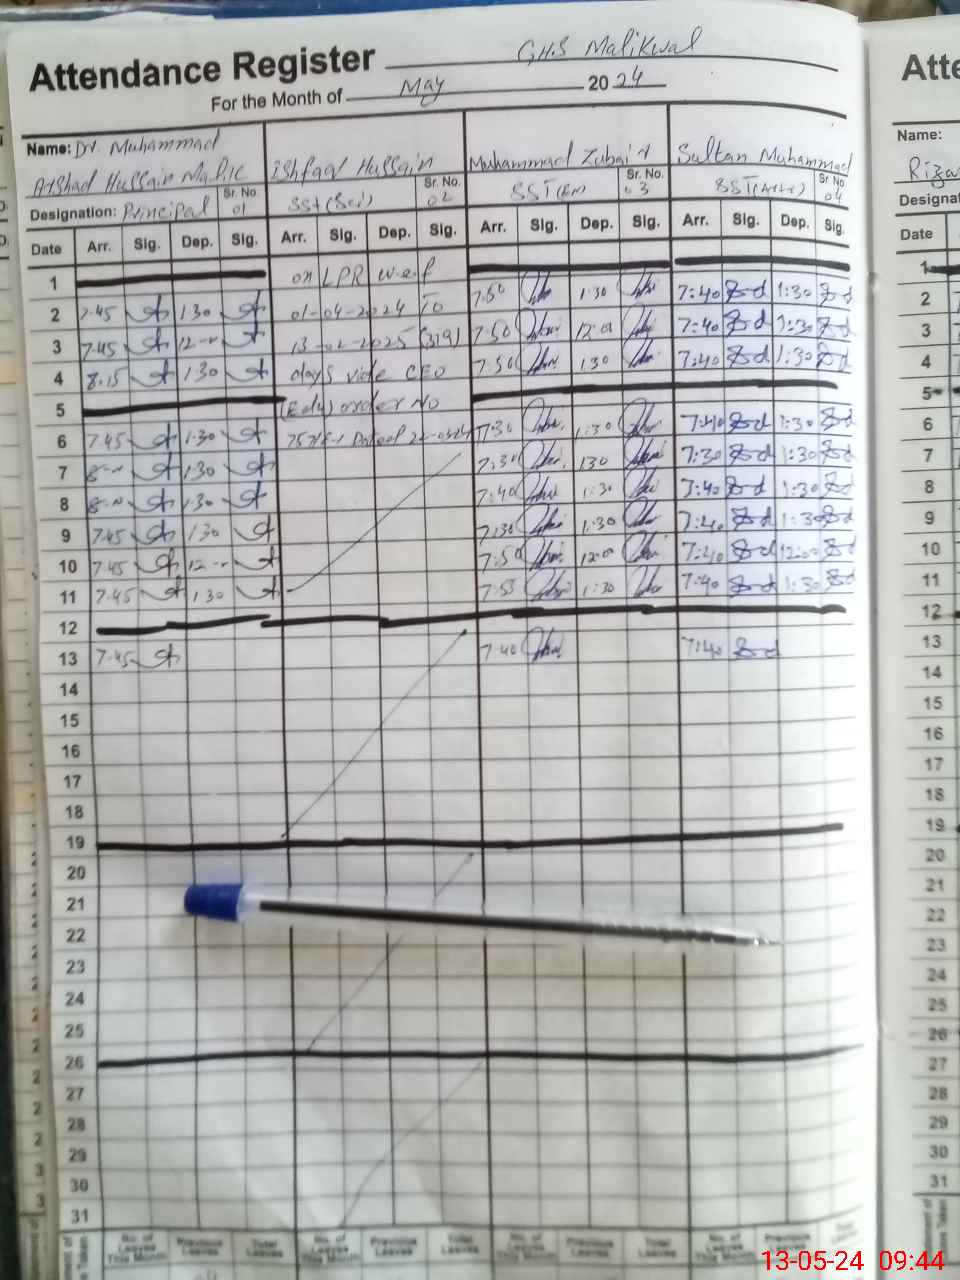 Attendance Register GHS Malikwal
For the Month of May 2024
Name: Dr. Muhammad
Arshad Hussain Malik Ishfaq Hussain Muhammad Zubair Sultan Muhammad
Designation: Principal Sr. No. 01 SST (Sci) Sr. No. 02 SST (Sr. No. 03 SST (Arts) Sr. No. 04
Date Arr. Sig. Dep. Sig. Arr. Sig. Dep. Sig. Arr. Sig. Dep. Sig. Arr. Sig. Dep. Sig.
1 on LPR w.e.f
2 7-45 1-30 01-04-2024 To 7:50 1:30 7:40 1:30
3 7-45 12 13-02-2025 (319) 7:50 12:00 7:40
4 8.15 1 30 days vide CEO 7:50 1:30 7:40 1:30
5 (Edu) order No
6 7.45 1-30 Dated 7:30 1:30 7:40 1:30
7 8 1.30 7:30 1:30 7:30 1:30
8 8 1.30 7:40 1:30 7:40 1:30
9 7.45 1.30 7:30 1:30 7:40 1:30
10 7.45 12 7:50 12:00 7:40 12:00
11 7-45 1.30 7:55 1:30 7:40 1:30
12
13 7-45 7:40 7:40
14
15
16
17
18
19
20
21
22
23
24
25
26
27
28
29
30
31
No. of Leaves This Month Previous Leaves Total Leaves No. of Leaves This Month Previous Leaves Total Leaves No. of Leaves This Month Previous Leaves Total Leaves No. of Leaves This Month Previous Leaves
Atte
Name:
Designat
Date
1
2
3
4
5
6
7
8
9
10
11
12
13
14
15
16
17
18
19
20
21
22
23
24
25
26
27
28
29
30
31
13-05-24 09:44